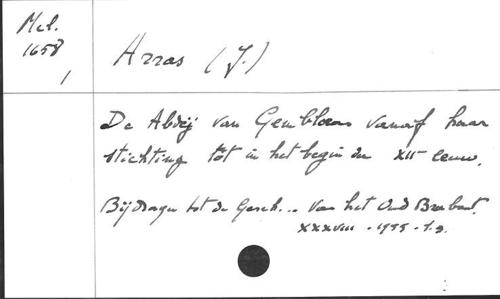 Mel.
1658
1
Arras (J.)
De Abdij van Gembloers vanaf haar
stichting tot in het begin der XIIe eeuw.
Bijdragen tot de Gesch... van het Oud Brabant.
XXXVIII - 1955 - 1.2.